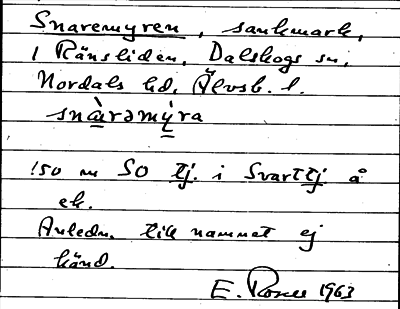 Snaremyren, sankmark,
i Ränsliden, Dalskogs sn,
Nordals hd, Älvsb. l.
snàrəmýra
150 m SO tj. i Svarttj å
ek.
Anledn. till namnet ej
känd.
E. 1963